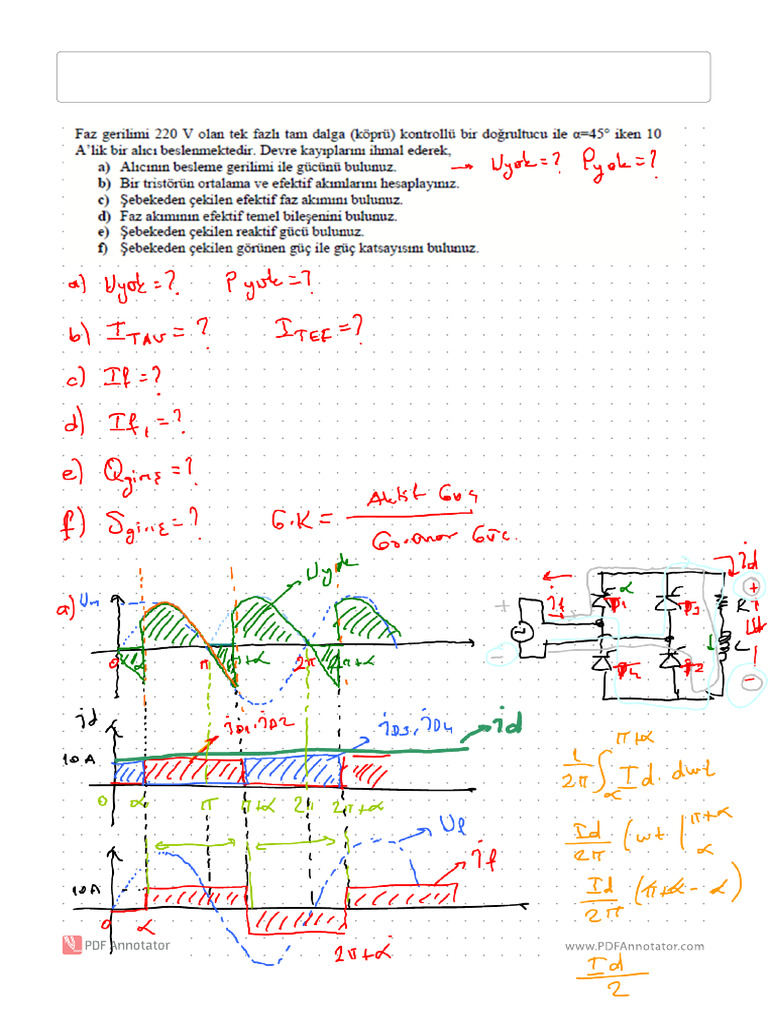 Faz gerilimi 220 V olan tek fazlı tam dalga (köprü) kontrollü bir doğrultucu ile α=45° iken 10
A'lik bir alıcı beslenmektedir. Devre kayıplarını ihmal ederek,
a) Alıcının besleme gerilimi ile gücünü bulunuz. → Uyok=? Pyok=?
b) Bir tristörün ortalama ve efektif akımlarını hesaplayınız.
c) Şebekeden çekilen efektif faz akımını bulunuz.
d) Faz akımının efektif temel bileşenini bulunuz.
e) Şebekeden çekilen reaktif gücü bulunuz.
f) Şebekeden çekilen görünen güç ile güç katsayısını bulunuz.
a) Uyok=? Pyok=?
b) ITAV=? ITEF=?
c) If=?
d) If1=?
e) Qgiriş=?
f) Sgiriş=? G.K = Aktif Güç
Görünür Güç
a) Um Uyok
0 α π π+α 2π 2π+α
α id
T1 T3
if R
+ + Uyok
- L -
T4 T2
id
iD1, iD2 iD3, iD4 id
10A
0 α π π+α 2π 2π+α
Uf
if
10A
0 α 2π+α
1/2π ∫ Id. dwt
π+α
α
Id/2π (wt |
π+α
α
Id/2π (π+α-α)
Id/2
PDF Annotator www.PDFAnnotator.com